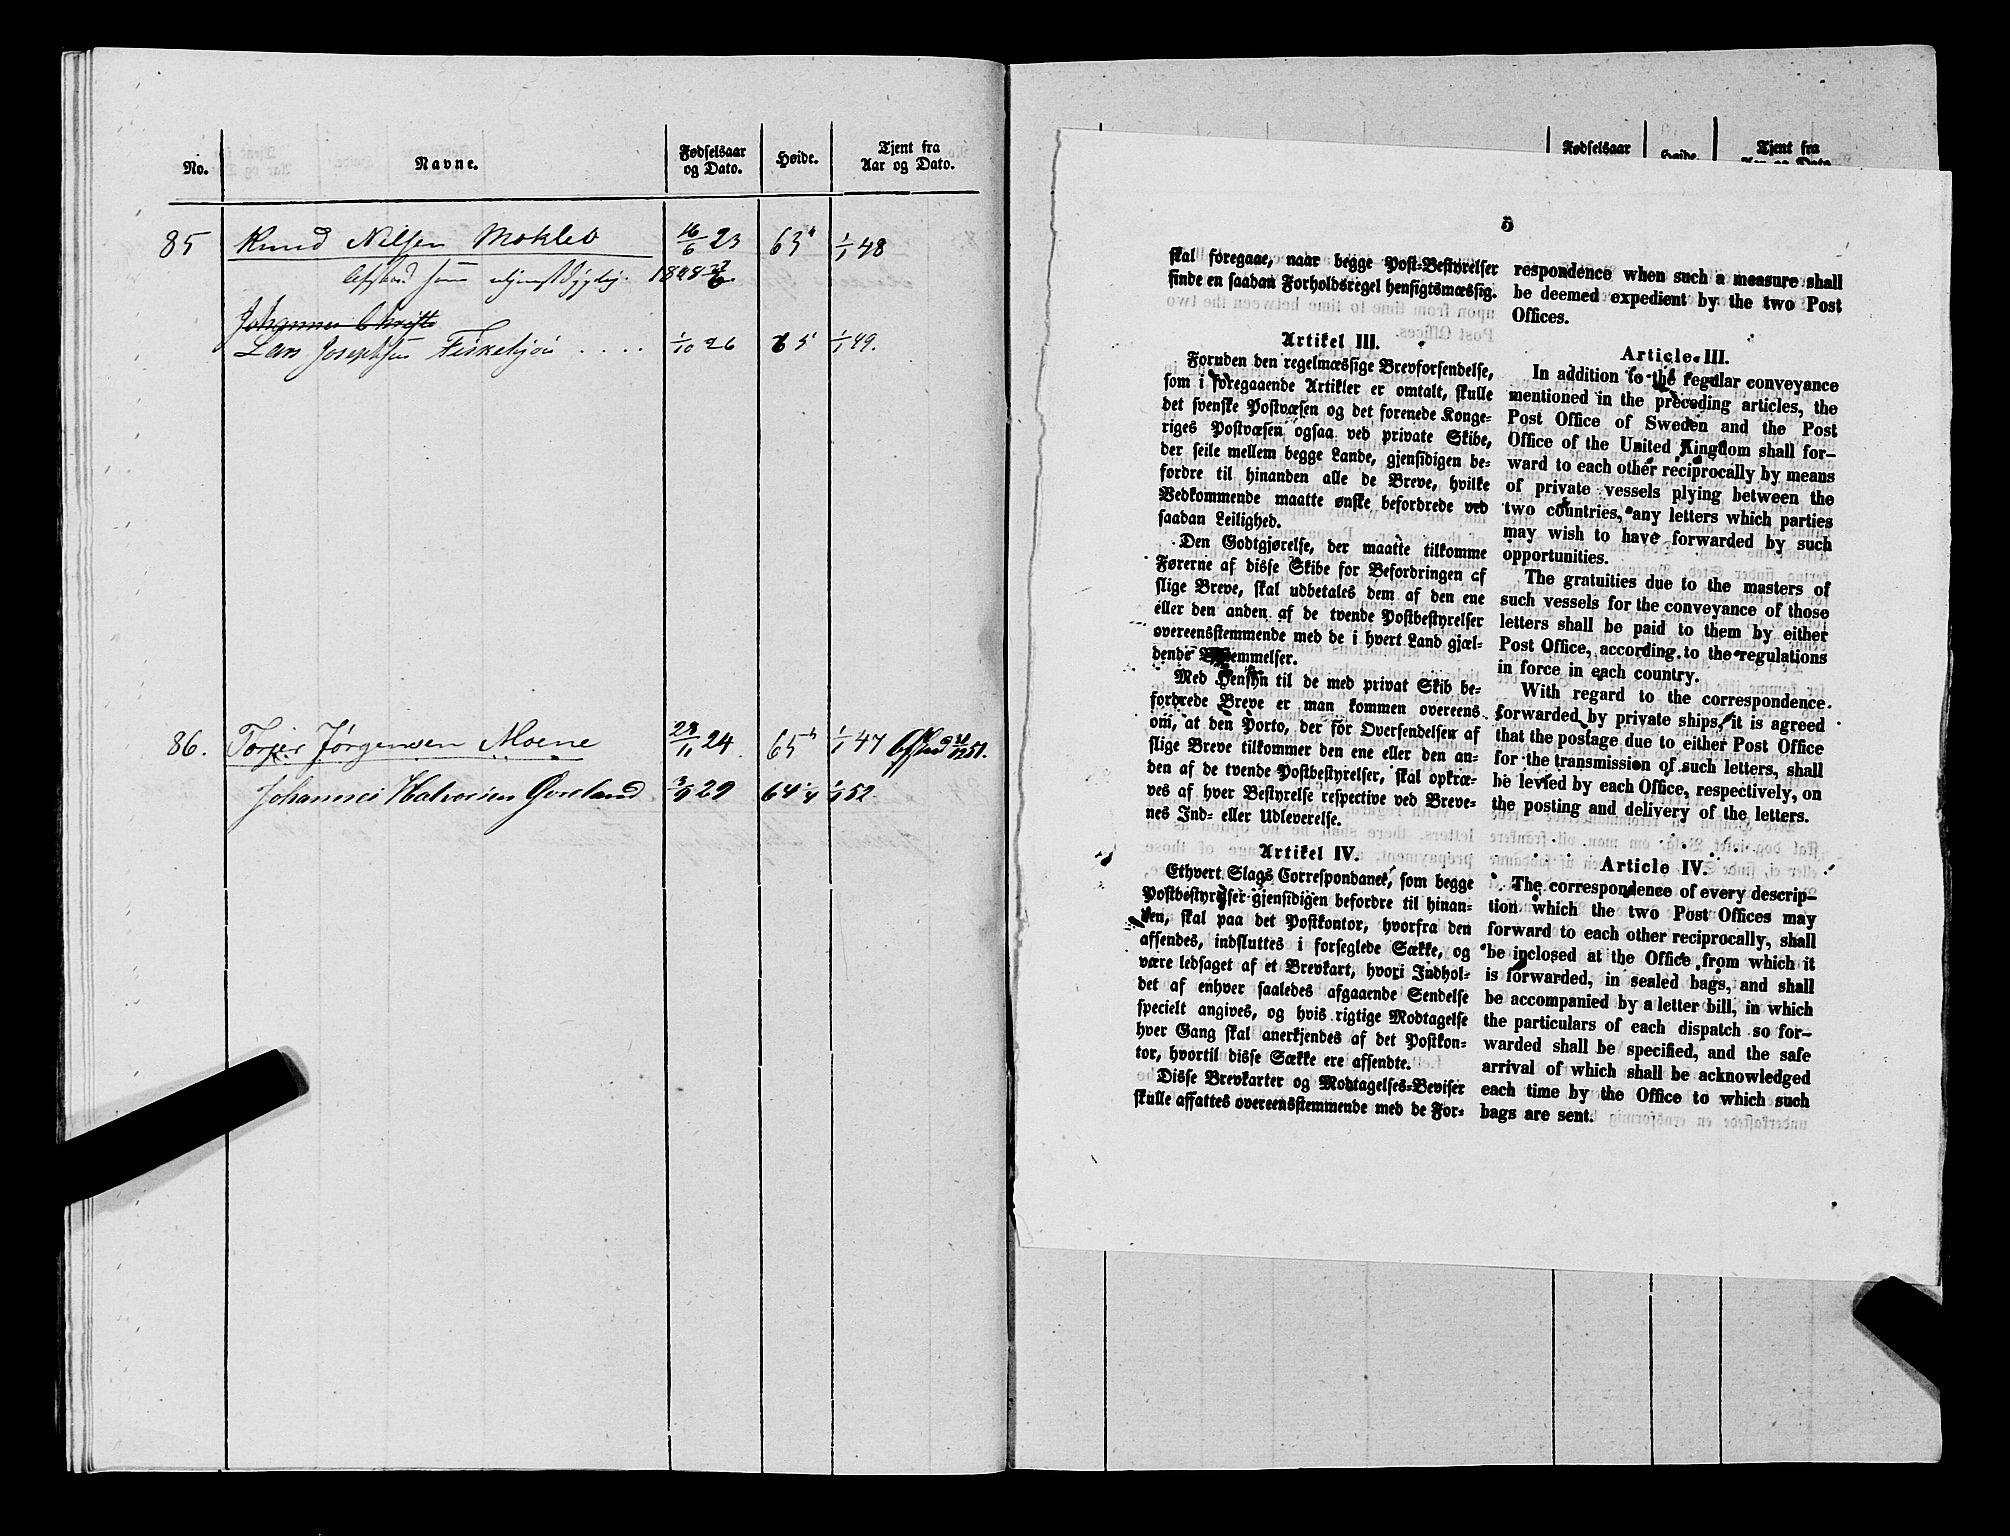 No.
Navne.
Fødselsaar
og Dato.
Høide.
Tjent fra
Aar og Dato.
85 Knud Nilsen Mokleb 16/6 23 65" 1/1 48
Afskeed som utjenstdygtig. 1848
Johannes Christ
Lars Josephsen Fisketjøn .... 1/10 26 65 1/1 49.
86. Torjer Jørgensen Moene 28/11 24. 65" 1/1 47 Afskeed 31/12 51.
Johannes Halvorsen Goreland 3/9 29 64 1/4 1/1 52.
Fødselsaar
Høide.
Tjent fra
Aar og Dato.
5
skal foregaae, naar begge Post-Bestyrelser
finde en saadan Forholdsregel hensigtsmæssig.
Artikel III.
Foruden den regelmæssige Brevforsendelse,
som i foregaaende Artikler er omtalt, skulle
det svenske Postvæsen og det forenede Konge-
riges Postvæsen ogsaa ved private Skibe,
der seile mellem begge Lande, gjensidigen be-
fordre til hinanden alle de Breve, hvilke
Vedkommende maatte ønske befordrede ved
saadan Leilighed.
Den Godtgjørelse, der maatte tilkomme
Førerne af disse Skibe for Befordringen af
slige Breve, skal udbetales dem af den ene
eller den anden af de tvende Postbestyrelser
overeensstemmende med de i hvert Land gjæl-
dende Bestemmelser.
Med Hensyn til de med privat Skib be-
fordrede Breve er man kommen overeens
om, at den Porto, der for Oversendelsen af
slige Breve tilkommer den ene eller den an-
den af de tvende Postbestyrelser, skal opkræ-
ves af hver Bestyrelse respective ved Breve-
nes Ind- eller Udleverelse.
Artikel IV.
Ethvert Slags Correspondance, som begge
Postbestyrelser gjensidigen befordre til hinan-
den, skal paa det Postkontor, hvorfra den
afsendes, indsluttes i forseglede Sække, og
være ledsaget af et Brevkart, hvori Indhol-
det af enhver saaledes afgaaende Sendelse
specielt angives, og hvis rigtige Modtagelse
hver Gang skal anerkjendes af det Postkon-
tor, hvortil disse Sække ere afsendte.
Disse Brevkarter og Modtagelses-Beviser
skulle affattes overeensstemmende med de For-
respondence when such a measure shall
be deemed expedient by the two Post
Offices.
Article III.
In addition to the regular conveyance
mentioned in the preceding articles, the
Post Office of Sweden and the Post
Office of the United Kingdom shall for-
ward to each other reciprocally by means
of private vessels plying between the
two countries, any letters which parties
may wish to have forwarded by such
opportunities.
The gratuities due to the masters of
such vessels for the conveyance of those
letters shall be paid to them by either
Post Office, according to the regulations
in force in each country.
With regard to the correspondence
forwarded by private ships, it is agreed
that the postage due to either Post Office
for the transmission of such letters, shall
be levied by each Office, respectively, on
the posting and delivery of the letters.
Article IV.
The correspondence of every descrip-
tion which the two Post Offices may
forward to each other reciprocally, shall
be inclosed at the Office from which it
is forwarded, in sealed bags, and shall
be accompanied by a letter bill, in which
the particulars of each dispatch so for-
warded shall be specified, and the safe
arrival of which shall be acknowledged
each time by the Office to which such
bags are sent.